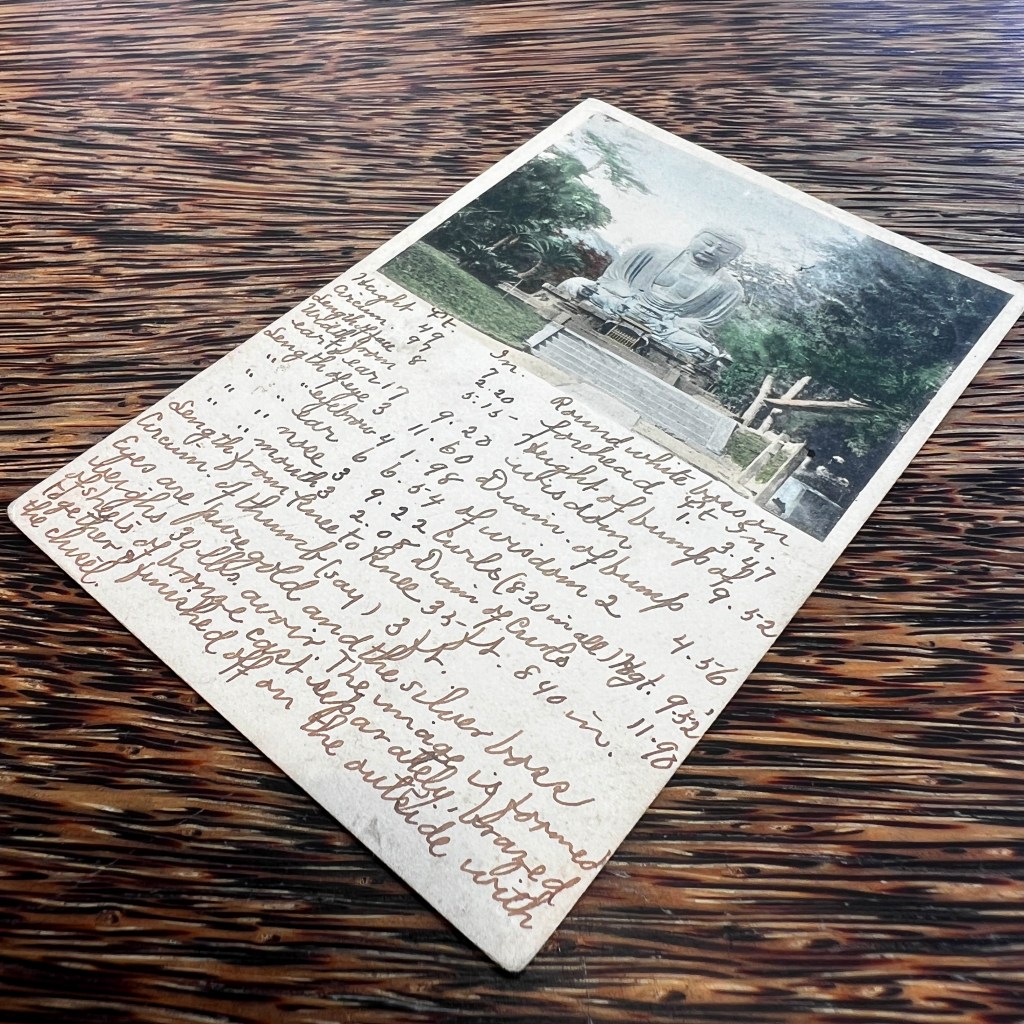 Ft. In.
Height 49 7
Circum 97 2.20
Length face 8 5.15
Width from
ear to ear 17 9.20
Length of eye 3 11.60
" " eyebrow 4 1.98
" " ear 6 6.54
" " nose 3 9.22
" " mouth 3 2.08
Length from knee to knee 35 ft. 8 40 in.
Circum. of thumb (say) 3 ft.
Eyes are pure gold and the silver boss
weighs 30 lbs. avoir. The image is formed
of sheets of bronze cast separately, brazed
together & finished off on the outside with
the chisel.
Round white boss on
forehead Ft In.
1. 3.47
Height of bump of
wisdom 9.52
Diam. of bump
of wisdom 2 4.56
Curls (830 in all) Hgt. 9 52
Diam of Curls 11.98